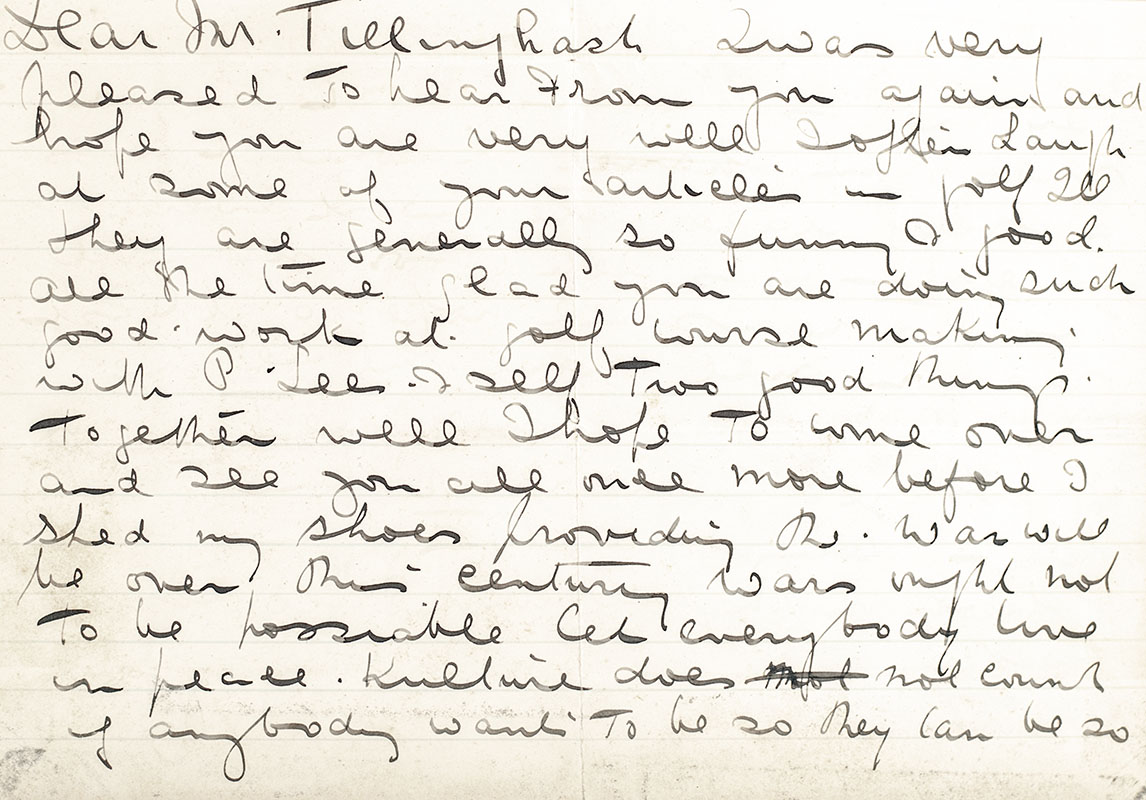 Dear Mr. Tillinghast I was very
pleased To hear From you again and
hope you are very well I often Laugh
at some of your articles in golf Ill
they are generally so funny & good.
all the time glad you are doing such
good work at golf course making
with P. Lees. I self Two good things
Together well I hope To come over
and see you all once more before I
shed my shoes providing the. War will
be over this century Wars ought not
To be possiable Let everybody live
in peace. Kulture does not not count
if anybody wants To be so they can be so